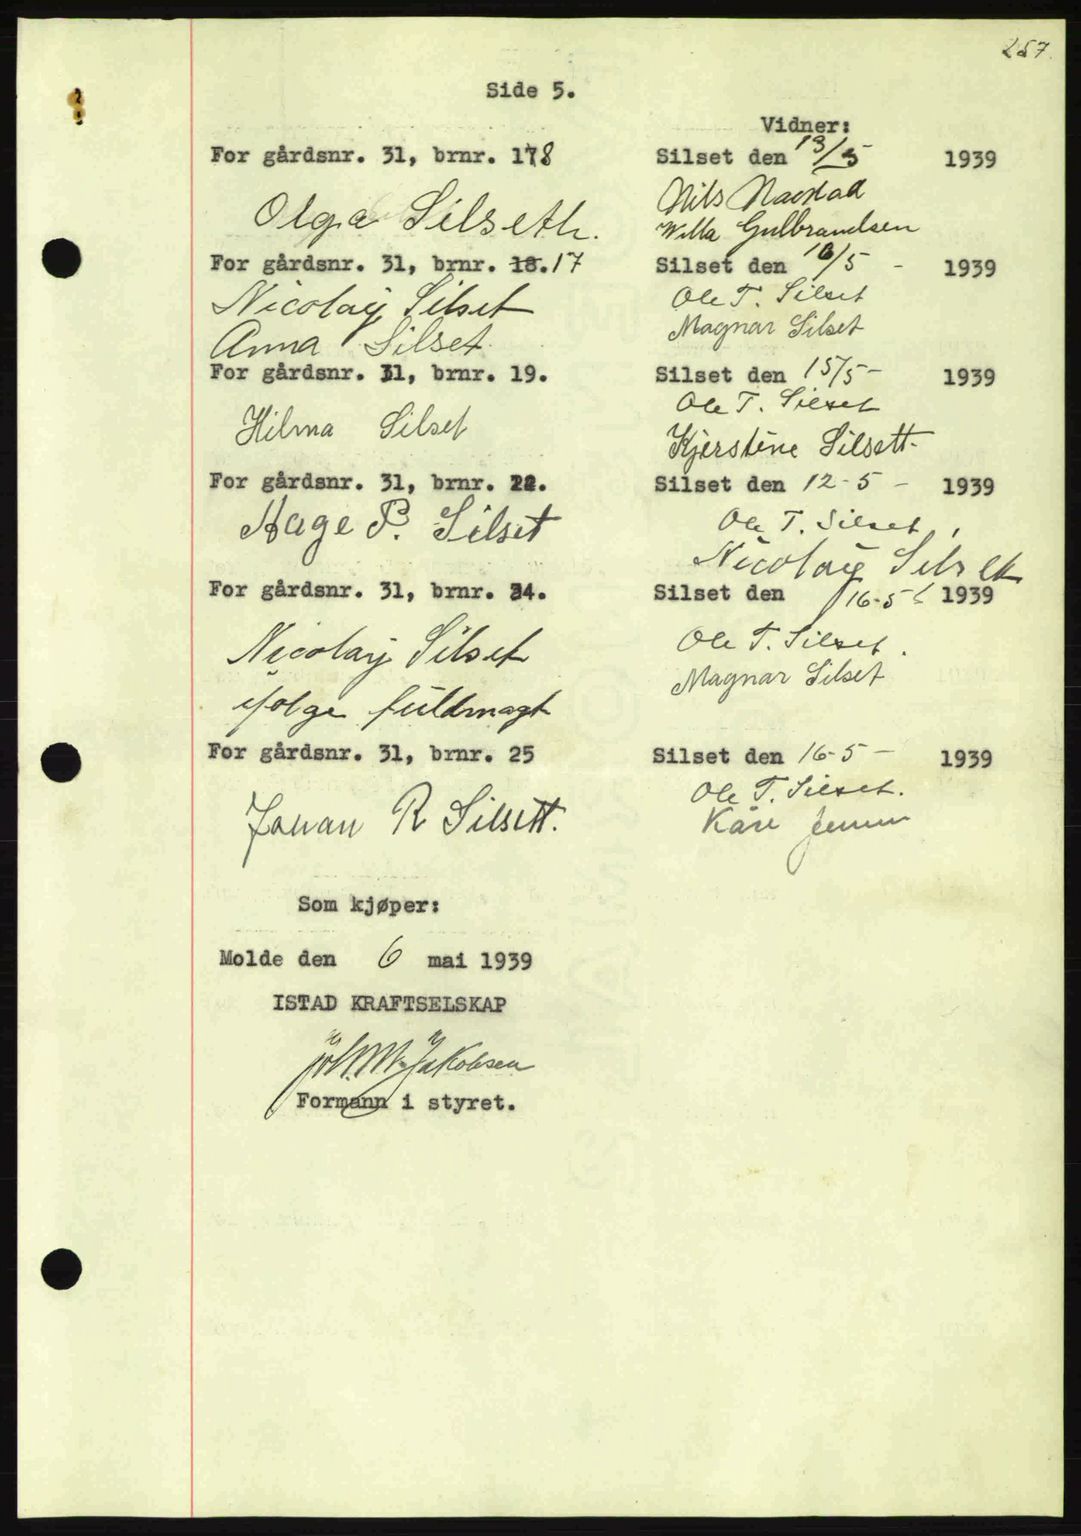 257.
Side 5.
Vidner:
For gårdsnr. 31, brnr. 178
Silset den 13/5 1939
Olga Silseth.
Nils
Willa Gulbrandsen
For gårdsnr. 31, brnr. 18. 17
Silset den 16/5 - 1939
Nicolay Silset
Ole T. Silset
Anna Silset.
Magnar Silset
For gårdsnr. 31, brnr. 19.
Silset den 15/5 - 1939
Hilma Silset
Ole T. Silset
Kjerstine Silsett.
For gårdsnr. 31, brnr. 22.
Silset den 12-5 - 1939
Hage P. Silset
Ole T. Silset
Nicolay Silset
For gårdsnr. 31, brnr. 24.
Silset den 16-5 1939
Nicolay Silset
Ole T. Silset.
Magnar Silset
ifolge fuldmagt
For gårdsnr. 31, brnr. 25
Silset den 16-5 - 1939
Johan R Silsett.
Ole T. Silset.
Kåre
Som kjøper:
Molde den 6 mai 1939
ISTAD KRAFTSELSKAP
Jakobsen
Formann i styret.